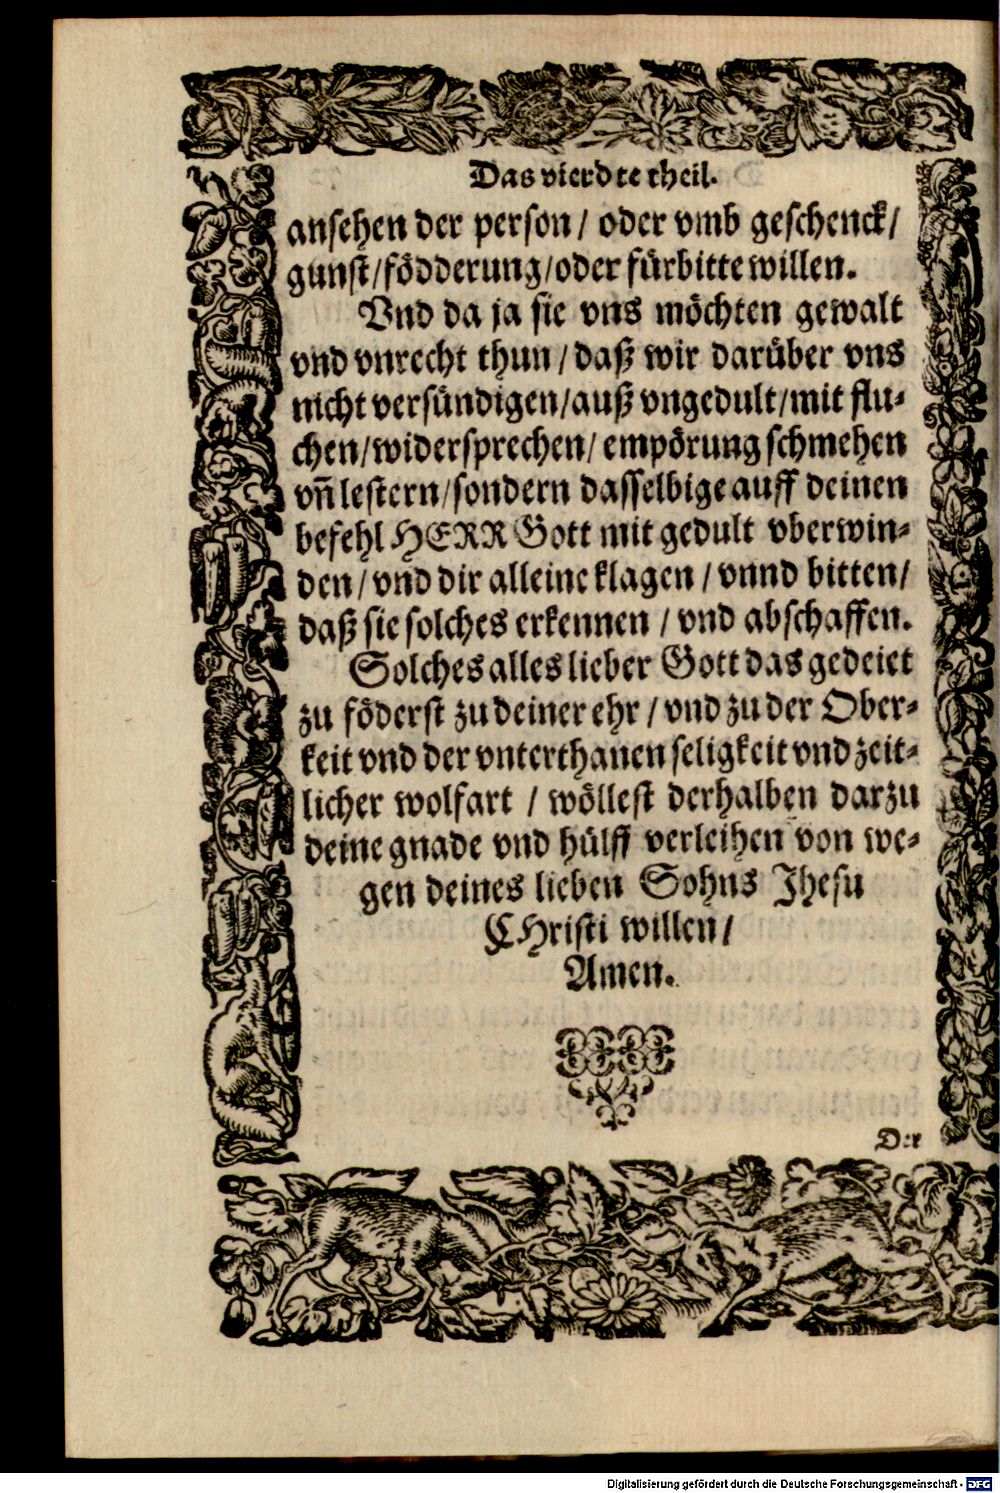 Das vierdte theil.
ansehen der person / oder vmb geschenck /
gunst / födderung / oder fürbitte willen.
Vnd da ja sie vns möchten gewalt
vnd vnrecht thun / daß wir darüber vns
nicht versündigen / auß vngedult / mit flu-
chen / widersprechen / empörung schmehen
vñ lestern / sondern dasselbige auff deinen
befehl HERR Gott mit gedult vberwin-
den / vnd dir alleine klagen / vnnd bitten /
daß sie solches erkennen / vnd abschaffen.
Solches alles lieber Gott das gedeiet
zu föderst zu deiner ehr / vnd zu der Ober-
keit vnd der vnterthanen seligkeit vnd zeit-
licher wolfart / wöllest derhalben darzu
deine gnade vnd hülff verleihen von we-
gen deines lieben Sohns Jhesu
CHristi willen /
Amen.
Der
Digitalisierung gefördert durch die Deutsche Forschungsgemeinschaft - DFG